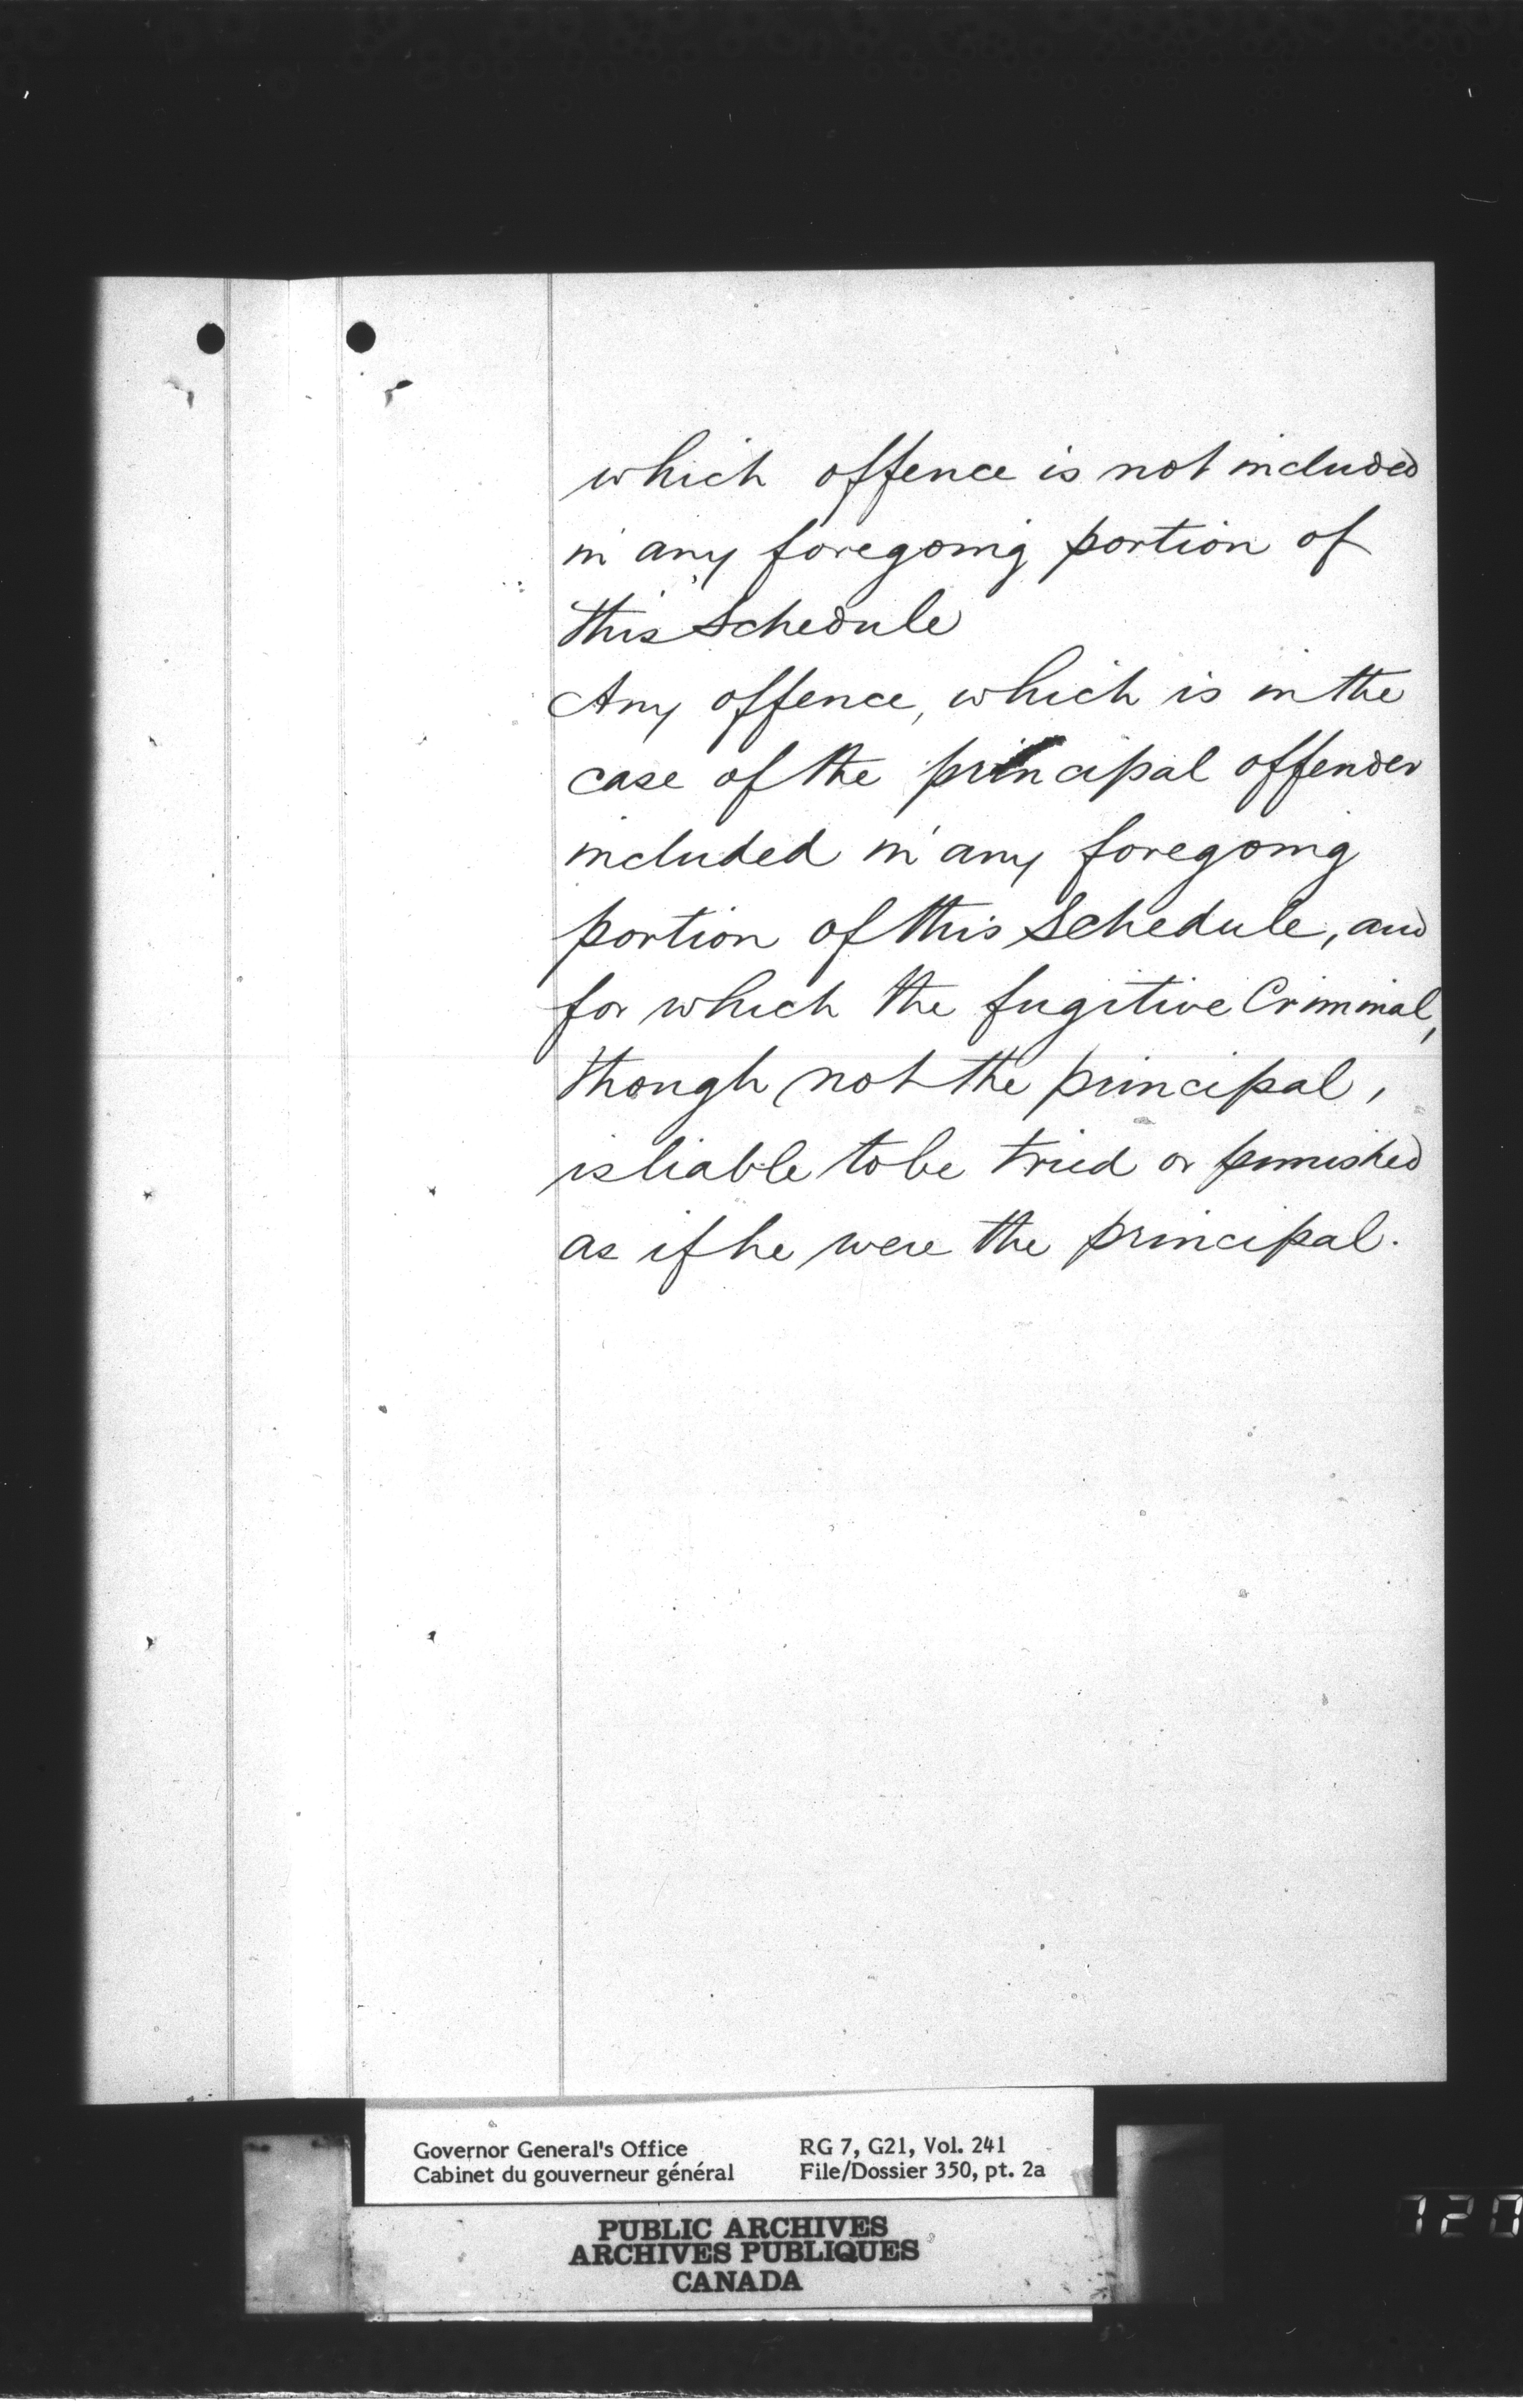 which offence is not included
in any foregoing portion of
this Schedule
Any offence, which is in the
case of the principal offender
included in any foregoing
portion of this Schedule, and
for which the fugitive Criminal,
though not the principal,
is liable to be tried or punished
as if he were the principal.
Governor General's Office RG 7, G21, Vol. 241
Cabinet du gouverneur général File/Dossier 350, pt. 2a
PUBLIC ARCHIVES
ARCHIVES PUBLIQUES
CANADA
120